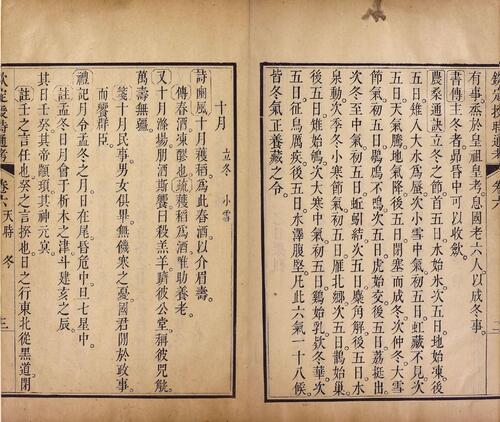 欽定授時通考 六 二
有事烝於皇祖皇考。息國老六人以成冬事。
書傳主冬者昴昏中可以收斂。
農桑通訣立冬之節首五日水始氷次五日地始凍後
五日雉入大水爲蜃次小雪中氣初五日虹藏不見次
五日天氣騰地氣降後五日閉塞而成冬次仲冬大雪
節氣初五日鶡鴠不鳴次五日虎始交後五日荔挺出。
次冬至中氣初五日蚯蚓結次五日麋角解後五日水
泉動次季冬小寒節氣初五日雁北鄉次五日鵲始巢
後五日雉始鴝次大寒中氣初五日鷄始乳欵冬華次
五日征鳥厲疾後五日水澤腹堅。凡此六氣一十八候。
皆冬氣正養藏之令。
十月 立冬 小雪
詩豳風十月穫稻。爲此春酒以介眉壽。
傳春酒凍醪也。疏穫稻爲酒唯助養老。
又十月滌場。朋酒斯饗曰殺羔羊。躋彼公堂。稱彼兕觥。
萬壽無疆。
箋十月民事男女俱畢無饑寒之憂。國君閒於政事。
而饗群臣。
禮記月令孟冬之月日在尾昏危中旦七星中。
註孟冬日月會于析木之津斗建亥之辰。
其日壬癸。其帝顓頊其神元冥。
註壬之言任也。癸之言揆也。日之行東北從黑道閉
欽定授時通考 卷六 天時 冬 三